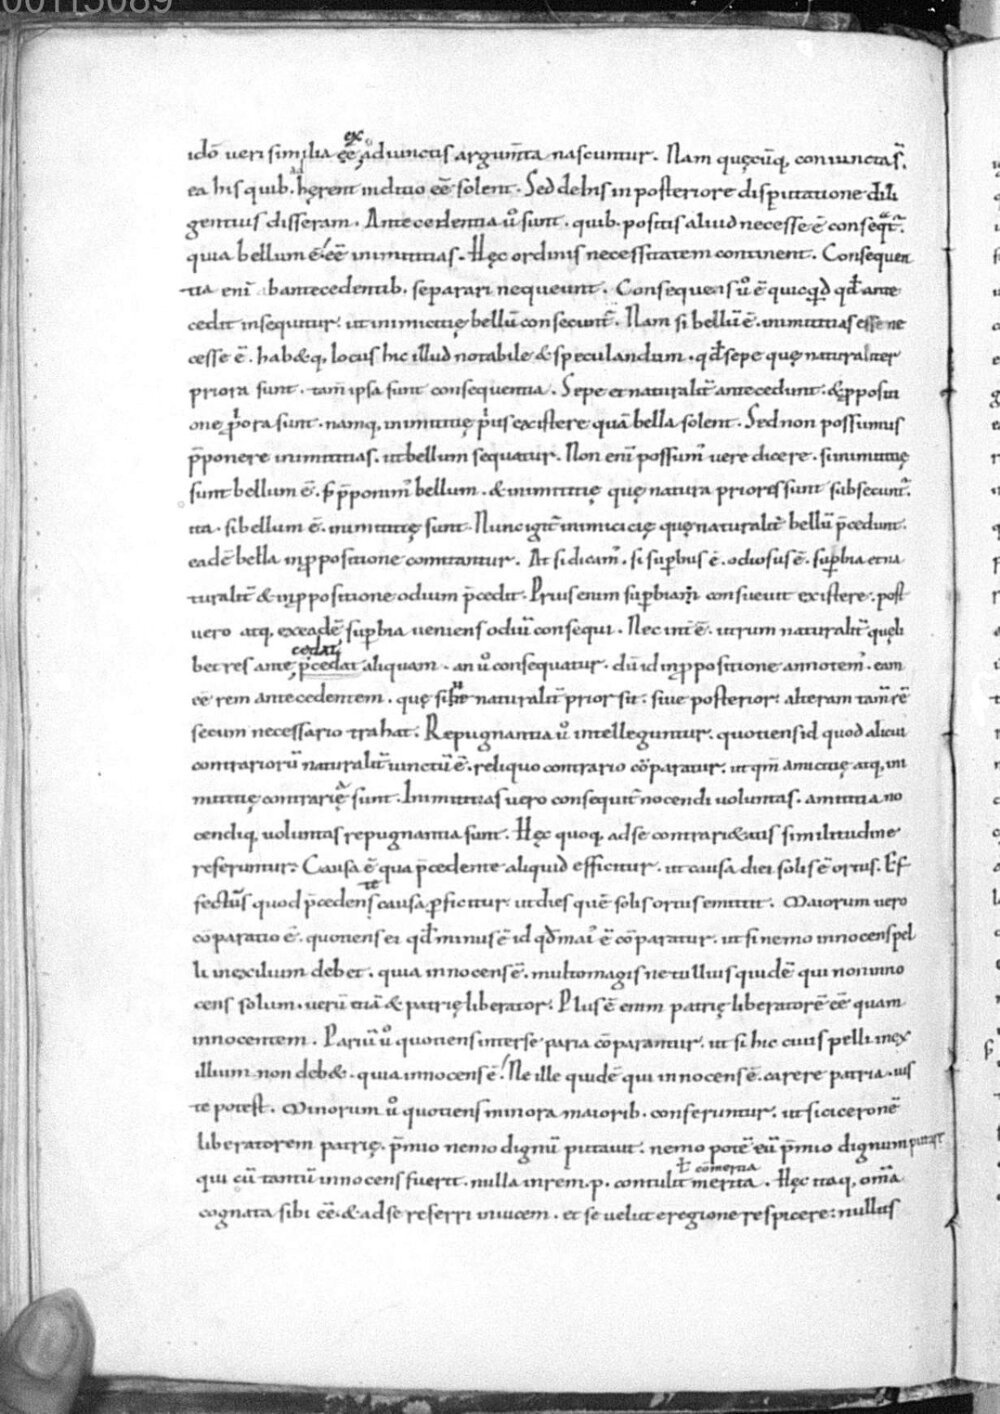 00113089
idõ veri similia ẽẽ ex adiunctis argum̃ta nascuntur. Nam quęcũq, coniuncta s̃.
ea his quib. hęrent in dicio eẽ solent. Sed de his in posteriore disputatione dili
gentius disseram. Antecedentia ũo sunt. quib. positis aliud necesse ẽ conseq̃t̃.
quia bellum ẽ. eẽ inimicitias. Hęc ordinis necessitatem continent. Consequen
tia enĩ ab antecedentib. separari nequeunt. Consequens ũo ẽ quicq̃d qđ ante
cedit insequitur. ut inimicitię bellũ consecunt̃. Nam si bellũ ẽ. inimicitias esse ne
cesse ẽ. hab&q, locus hic illud notabile & speculandum. qđ sepe quę naturaliter
priora sunt. tam̃ ipsa sunt consequentia. Sepe et naturalit̃ antecedunt. & p̱positi
one p̃ora sunt. namq, inimicitię p̃us existere quã bella solent. Sed non possumus
p̃ponere inimicitias. ut bellum sequatur. Non enĩ possum᾽ vere dicere. si inimicitię
sunt bellum ẽ. s; p̃ponim᾽ bellum. & inimicitię quę natura priores sunt subsecunt᾽.
ita. si bellum ẽ. inimicitię sunt. Nunc igit᾽ inimicicię quę naturalit̃ bellũ p̃cedunt.
eadẽ bella in p̱positione comitantur. At si dicam᾽. si sup̱bus ẽ. odiosus ẽ. sup̱bia et na
turalit̃ & in p̱positione odium p̃cedit. Prius enim sup̱biam consuevit existere. post
vero atq, ex eadẽ sup̱bia veniens odiũ consequi. Nec int̃ ẽ. utrum naturalit̃ quęli
bet res ante p̃cedat cedat aliquam. an ũo consequatur. dũ id in p̱positione annotem᾽. eam
eẽ rem antecedentem. quę sive naturalit̃ prior sit. sive posterior: alteram tam̃ rẽ
secum necessario trahat. Repugnantia ũo intelleguntur. quotiens id quod alicui
contrariorũ naturalit̃ vinctũ ẽ. reliquo contrario cõparatur. ut qm̃ amicitię atq, ini
micitię contrarię sunt. Inimicitias vero consequit᾽ nocendi voluntas. amicitia no
cendiq, voluntas repugnantia sunt. Hęc quoq, ad se contrari&atis similitudine
referuntur. Causa ẽ qua p̃cedente aliquid efficitur. ut causa diei solis ẽ ortus. Ef
fectus quod p̃cedens te causa p̱ficitur. ut dies quẽ solis ortus emittit. Maiorum vero
cõparatio ẽ. quotiens ei qđ minus ẽ id qđ mai᾽ ẽ cõparatur. ut si nemo innocens pel
li in exilium debet. quia innocens ẽ. multo magis ne tullius quidẽ qui non inno
cens solum. verũ etiã & patrię liberator. Plus ẽ enim patrię liberatorẽ eẽ quam
innocentem. Pariũ ũo quotiens inter se paria cõparantur. ut si hic civis pelli in ex
illium non deb&. quia innocens ẽ. Ne ille quidẽ qui innocens ẽ. carere patria. ius
te potest. Minorum ũo quotiens minora maiorib. conferuntur. ut si ciceronẽ
liberatorem patrię. p̃mio nemo dignũ putavit. nemo potẽ eũ p̃mio dignum putare
qui cũ tantũ innocens fuerit. nulla in rem .p. contulit merita ɫ cõmercia. Hęc itaq, om̃a
cognata sibi eẽ. & ad se referri invicem. et se velut e regione respicere: nullus